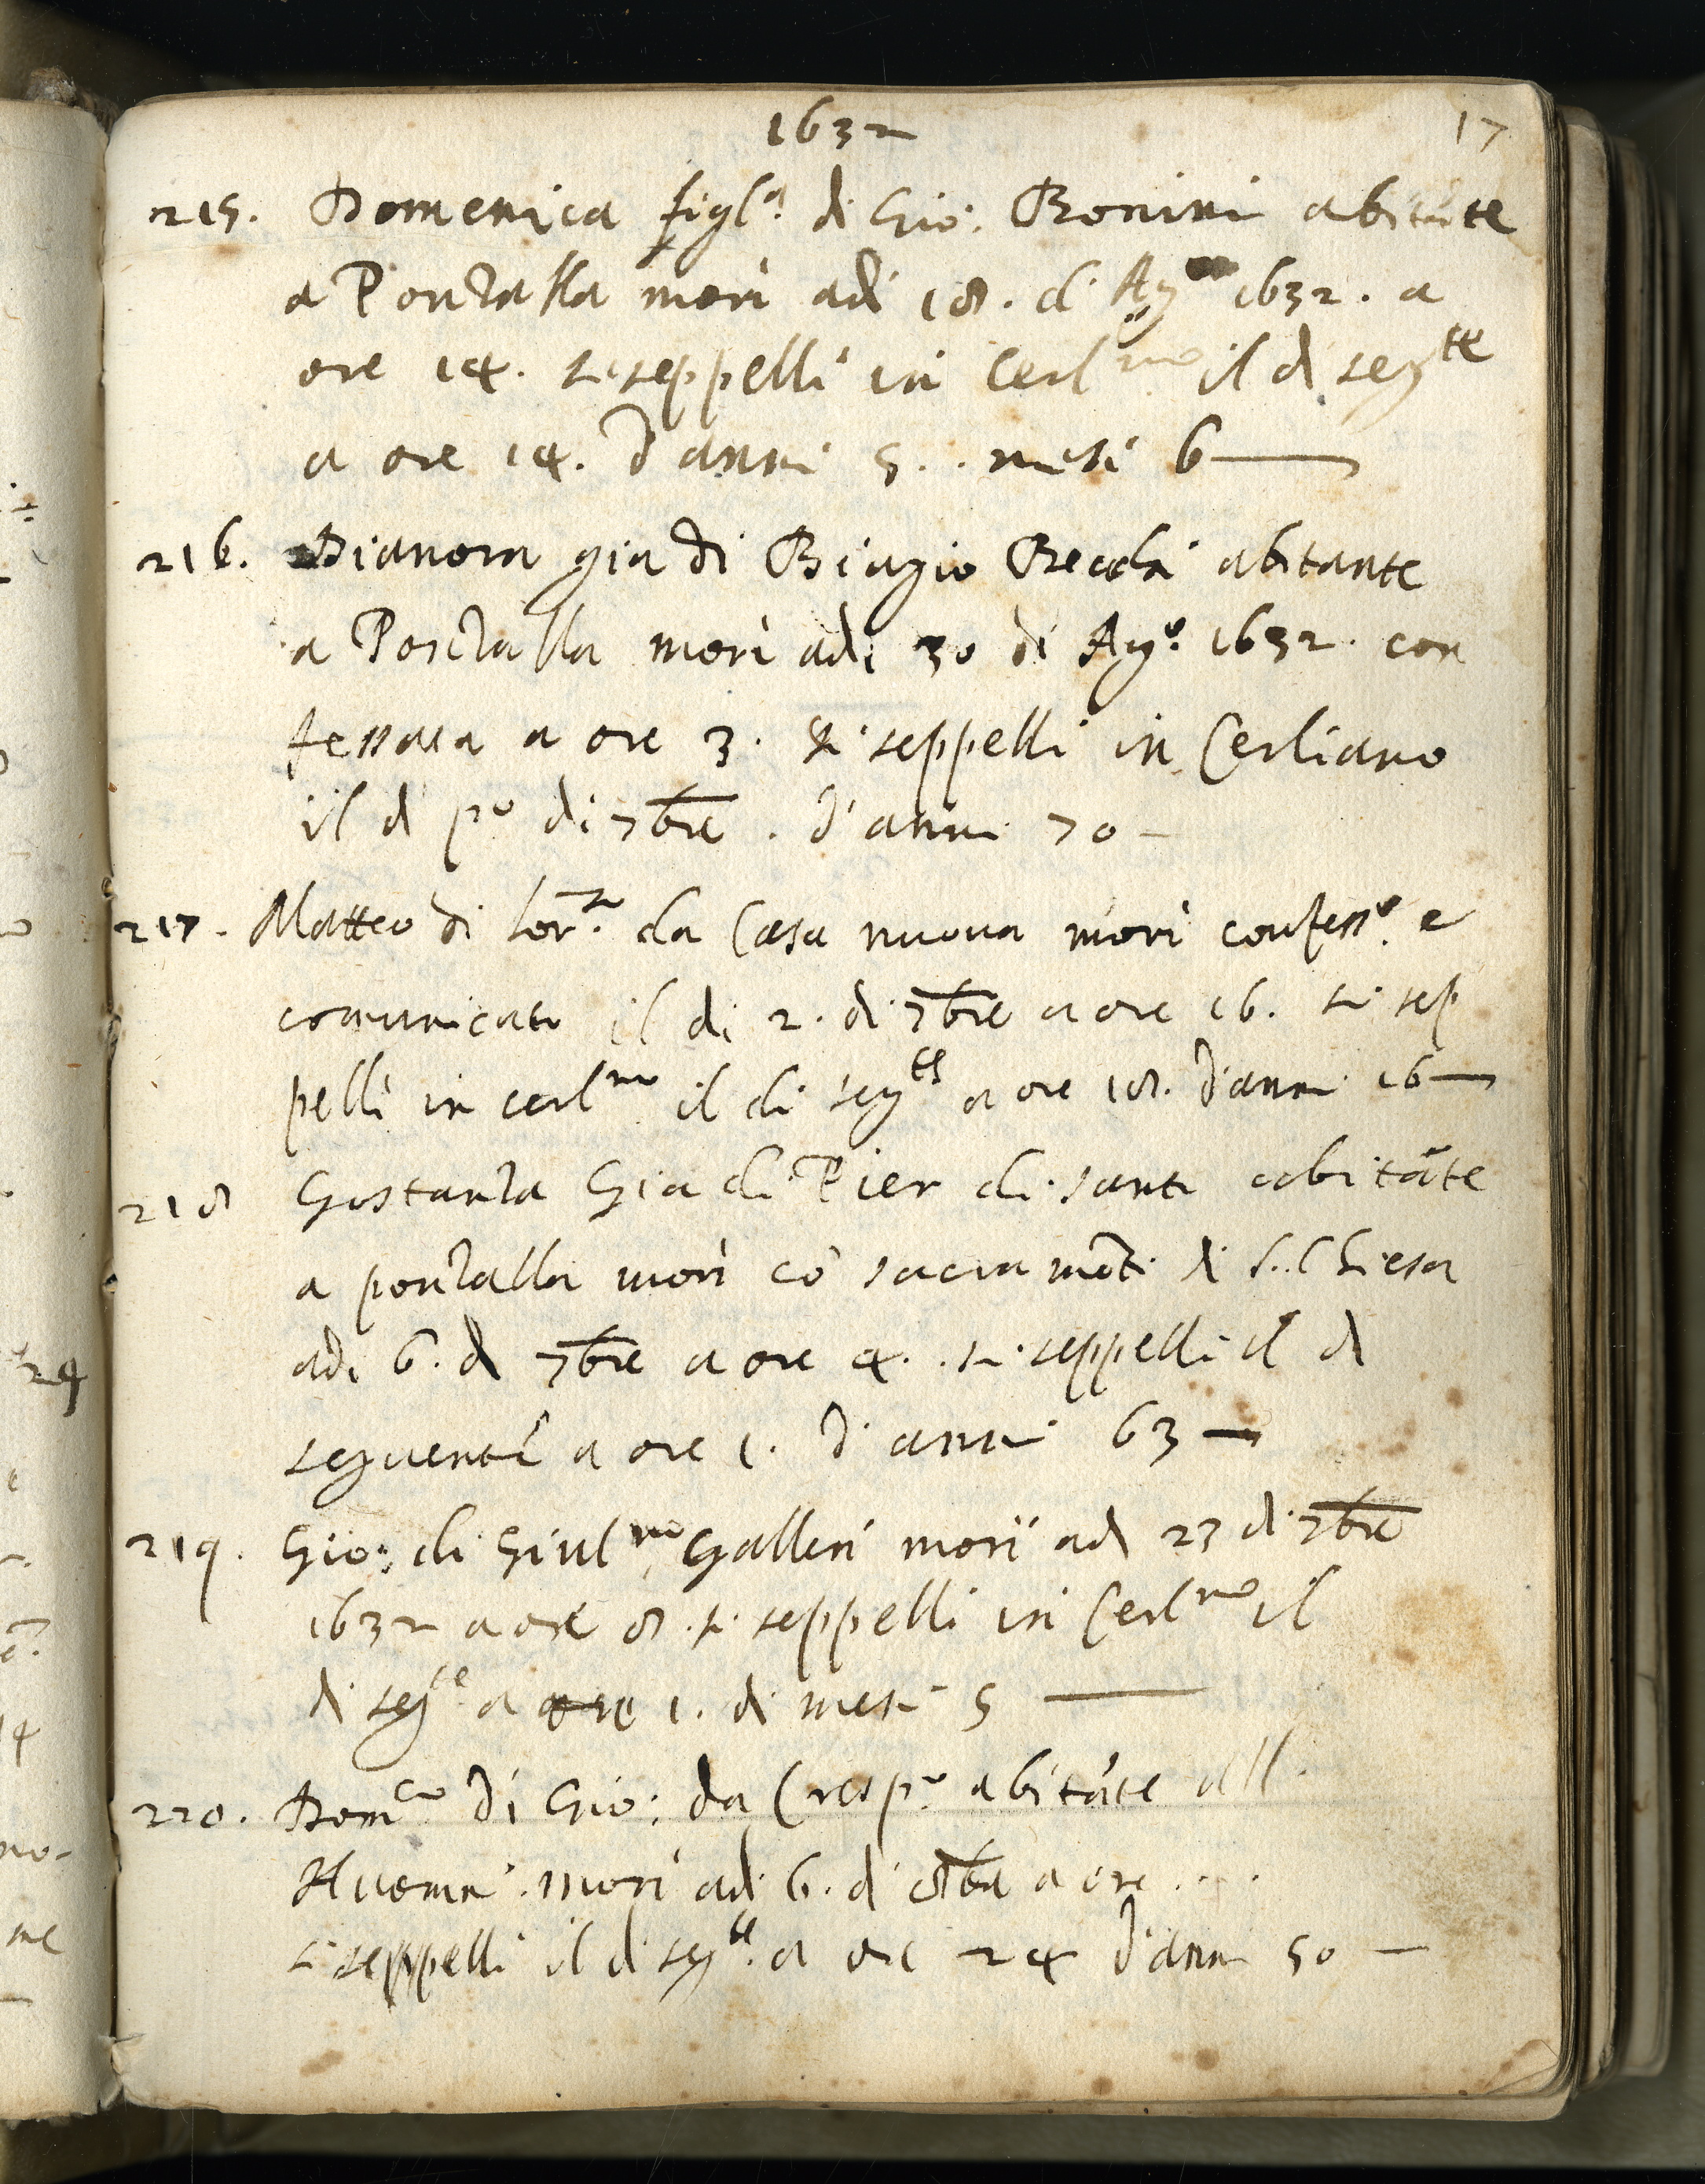 1632
17
215. Domenica figl.ª di Gio: Bonini abitāte
a Pontalla morì adi 18. di Ag 1632. a
ore 14. si seppellì in Cerl.no il dì seg.te
a ore 14. d'anni 5.. mesi 6
216. Dianora già di Biagio abitante
a Pontalla morì adi 30 di Ag.º 1632. con
fessata a ore 3. si seppellì in Cerliano
il dì p.º di 7bre. d'anni 70 -
217. Matteo di Lor.zo da Casa nuova morì confess.º e
comunicato il di 2. di 7bre a ore 16. si sep
pellì in cerl.no il di seg.te a ore 18. d'anni 16
218 Gostanza Già di Pier di santi abitāte
a pontalla morì cō sacramēti di S. Chiesa
adi 6. di 7bre a ore 4. si seppellì il dì
seguente a ore 1. d'anni 63
219. Gio: di Giul.no Galleri morì adi 23 di 7bre
1632 a ore 8. si seppellì in Cerl.no il
dì seg.te a ore 1. di mesi 5
220. Dom.co di Gio: da Cresp.º abitāte all
morì adi 6. di 8bre a ore ....
si seppellì il dì seg.te a ore 24 d'anni 50 -
24
14
no-
me